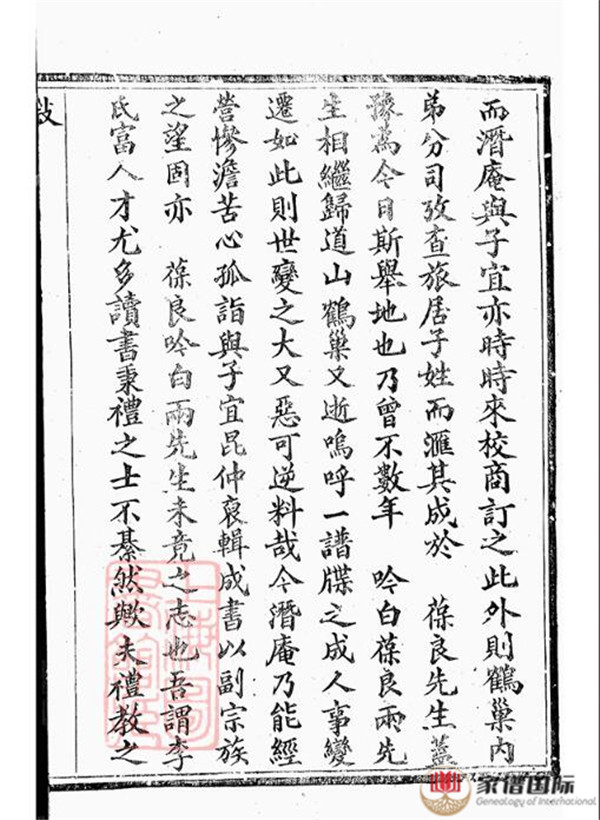 而潛庵與子宜亦時時來校商訂之此外則鶴巢內
弟分司攷查旅居子姓而滙其成於　葆良先生蓋
豫為今日斯舉地也乃曾不數年　吟白葆良兩先
生相繼歸道山鶴巢又逝嗚呼一譜牒之成人事變
遷如此則世變之大又惡可逆料哉今潛庵乃能經
營慘澹苦心孤詣與子宜昆仲裒輯成書以副宗族
之望固亦　葆良吟白兩先生未竟之志也吾謂李
氏富人才尤多讀書秉禮之士不綦然歟夫禮教之
家譜国际
Genealogy of International